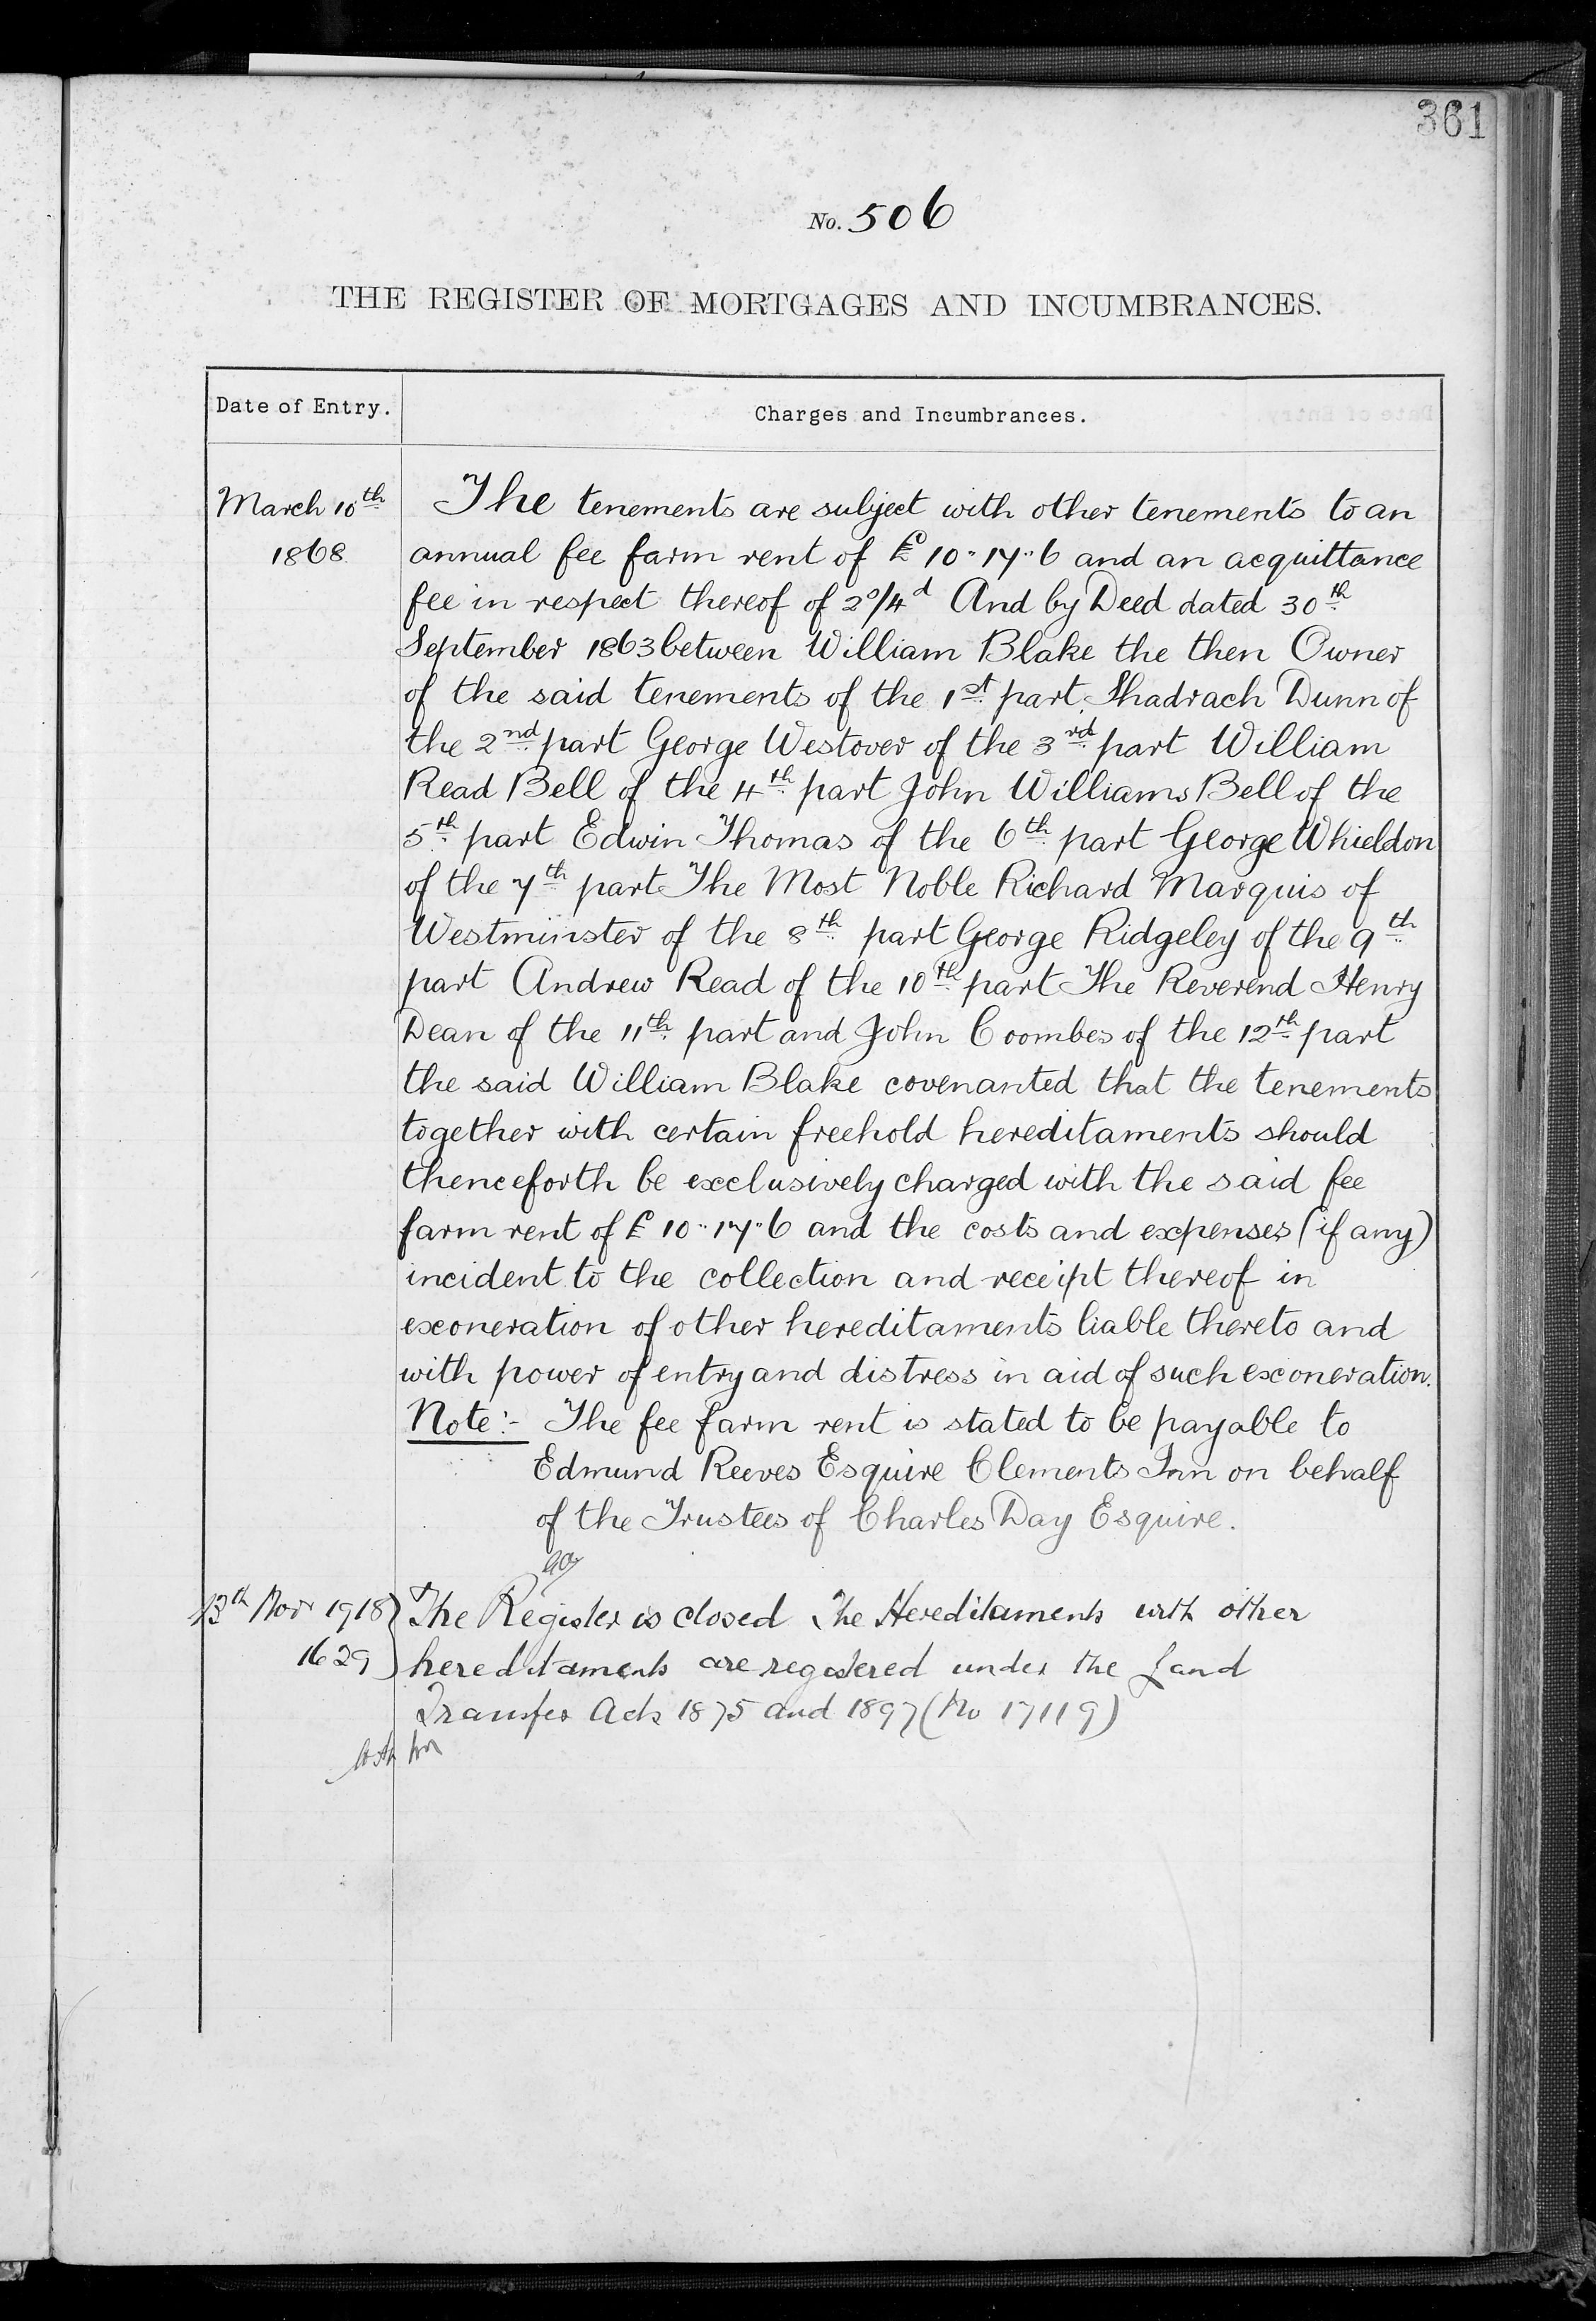 361
No. 506
THE REGISTER OF MORTGAGES AND INCUMBRANCES.
Date of Entry.
Charges and Incumbrances.
March 10th
1868
The tenements are subject with other tenements to an
annual fee farm rent of £10"17"6 and an acquittance
fee in respect thereof of 2s/4d And by Deed dated 30th
September 1863 between William Blake the then Owner
of the said tenements of the 1st part Shadrach Dunn of
the 2nd part George Westover of the 3rd part William
Read Bell of the 4th part John Williams Bell of the
5th part Edwin Thomas of the 6th part George Whieldon
of the 7th part The Most Noble Richard Marquis of
Westminster of the 8th part George Ridgeley of the 9th
part Andrew Read of the 10th part The Reverend Henry
Dean of the 11th part and John Coombes of the 12th part
the said William Blake covenanted that the tenements
together with certain freehold hereditaments should
thenceforth be exclusively charged with the said fee
farm rent of £10"17"6 and the costs and expenses (if any)
incident to the collection and receipt thereof in
exoneration of other hereditaments liable thereto and
with power of entry and distress in aid of such exoneration.
Note:- The fee farm rent is stated to be payable to
Edmund Reeves Esquire Clements Inn on behalf
of the Trustees of Charles Day Esquire.
13th Nov 1918
1629
The Register is closed The Hereditaments with other
hereditaments are registered under the Land
Transfer Acts 1875 and 1897 (No 17119)